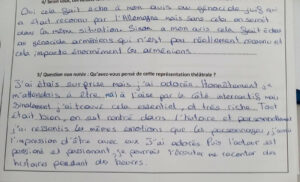 Oui cela fait écho à mon avis au génocide juif qui
a était reconnu par l'Allemagne mais sans cela on serait
dans la même situation. Sinon à mon avis cela fait écho
au génocide arméniens qui n'est pas réellement reconnu et
cela importe énormément les arméniens.
5/ Question non notée : Qu'avez-vous pensé de cette représentation théâtrale ?
J'ai étais surprise mais j'ai adorée. Honnêtement, je
m'attendais à être mit à l'aise par le côté
finalement j'ai trouvé cela essentiel, et très riche. Tout
était bien, on est rentré dans l'histoire et personnellement
j'ai ressentis les mêmes émotions que les personnages, j'avais
l'impression d'être avec eux. J'ai adoré. Puis l'acteur est
passionné et passionnant, je pourrais l'écouter me raconter des
histoires pendant des heures.